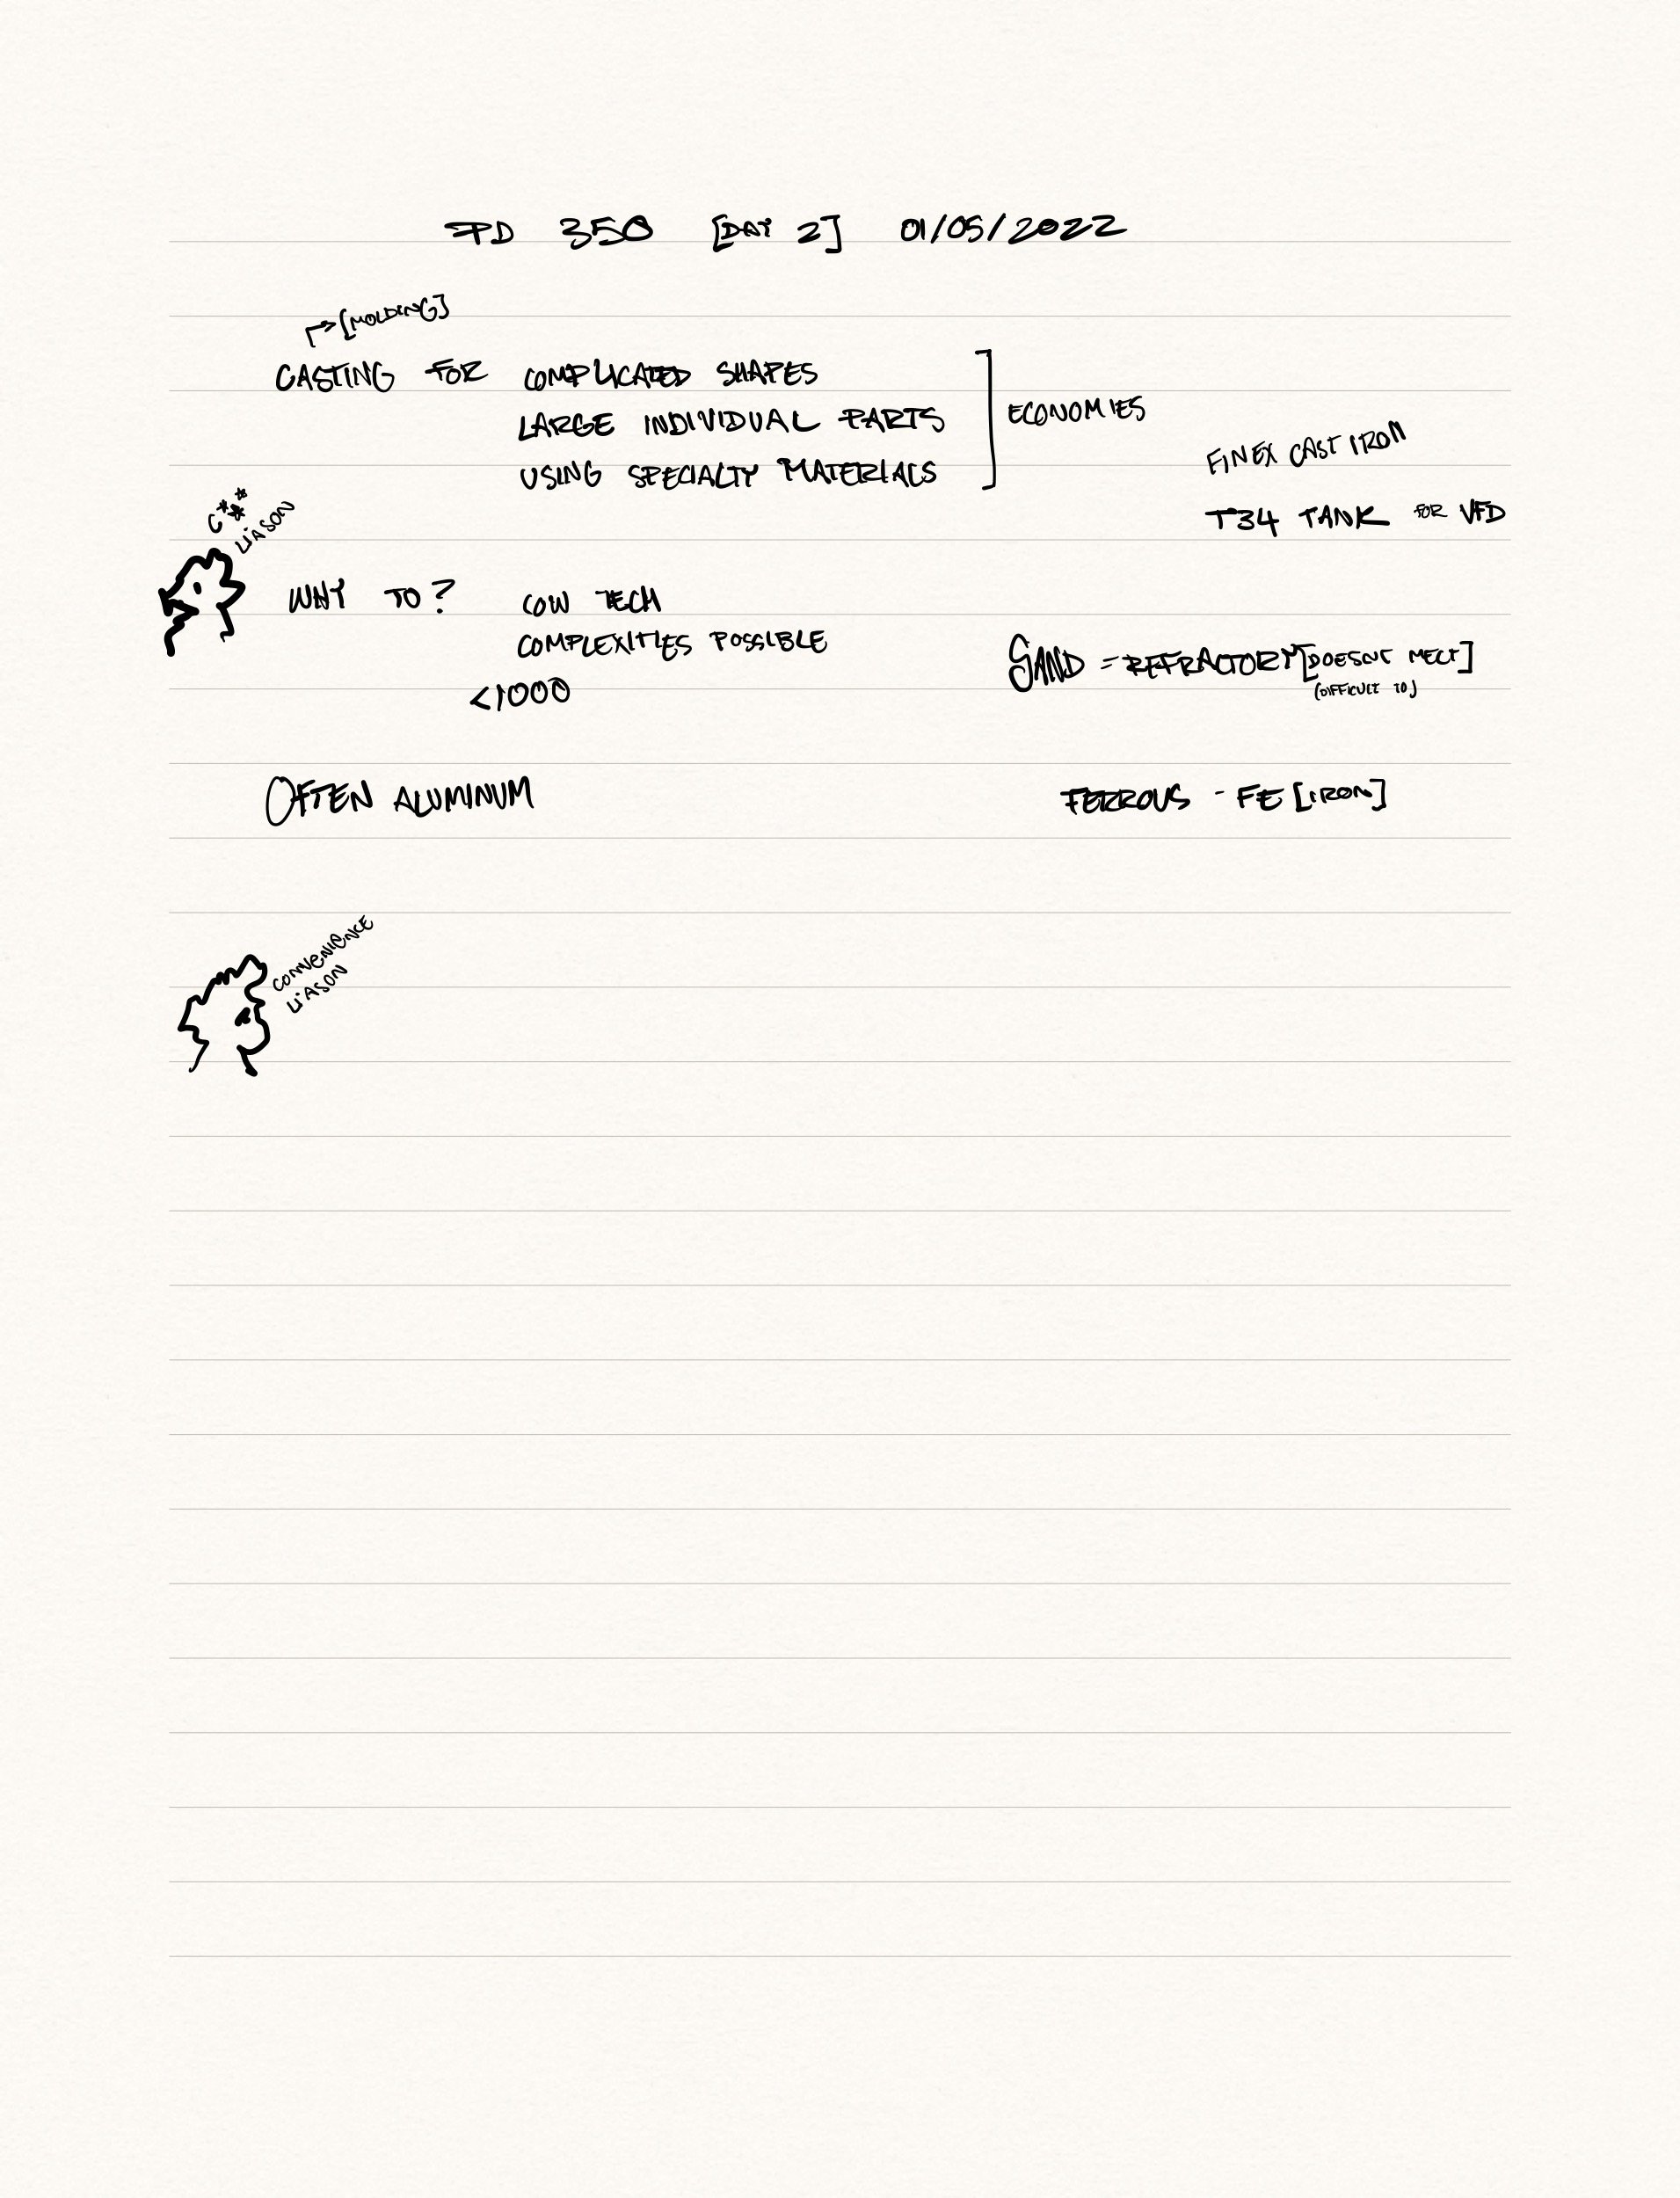 PD 350 [DAY 2] 01/05/2022
[MOLDING]
CASTING FOR COMPLICATED SHAPES
LARGE INDIVIDUAL PARTS
USING SPECIALTY MATERIALS
ECONOMIES
FINEX CAST IRON
T34 TANK FOR VFD
C***
LIASON
WHY TO? LOW TECH
COMPLEXITIES POSSIBLE
<1000
SAND = REFRACTORY [DOESNT MELT]
(DIFFICULT TO)
OFTEN ALUMINUM
FERROUS - FE [IRON]
CONVENIENCE
LIASON